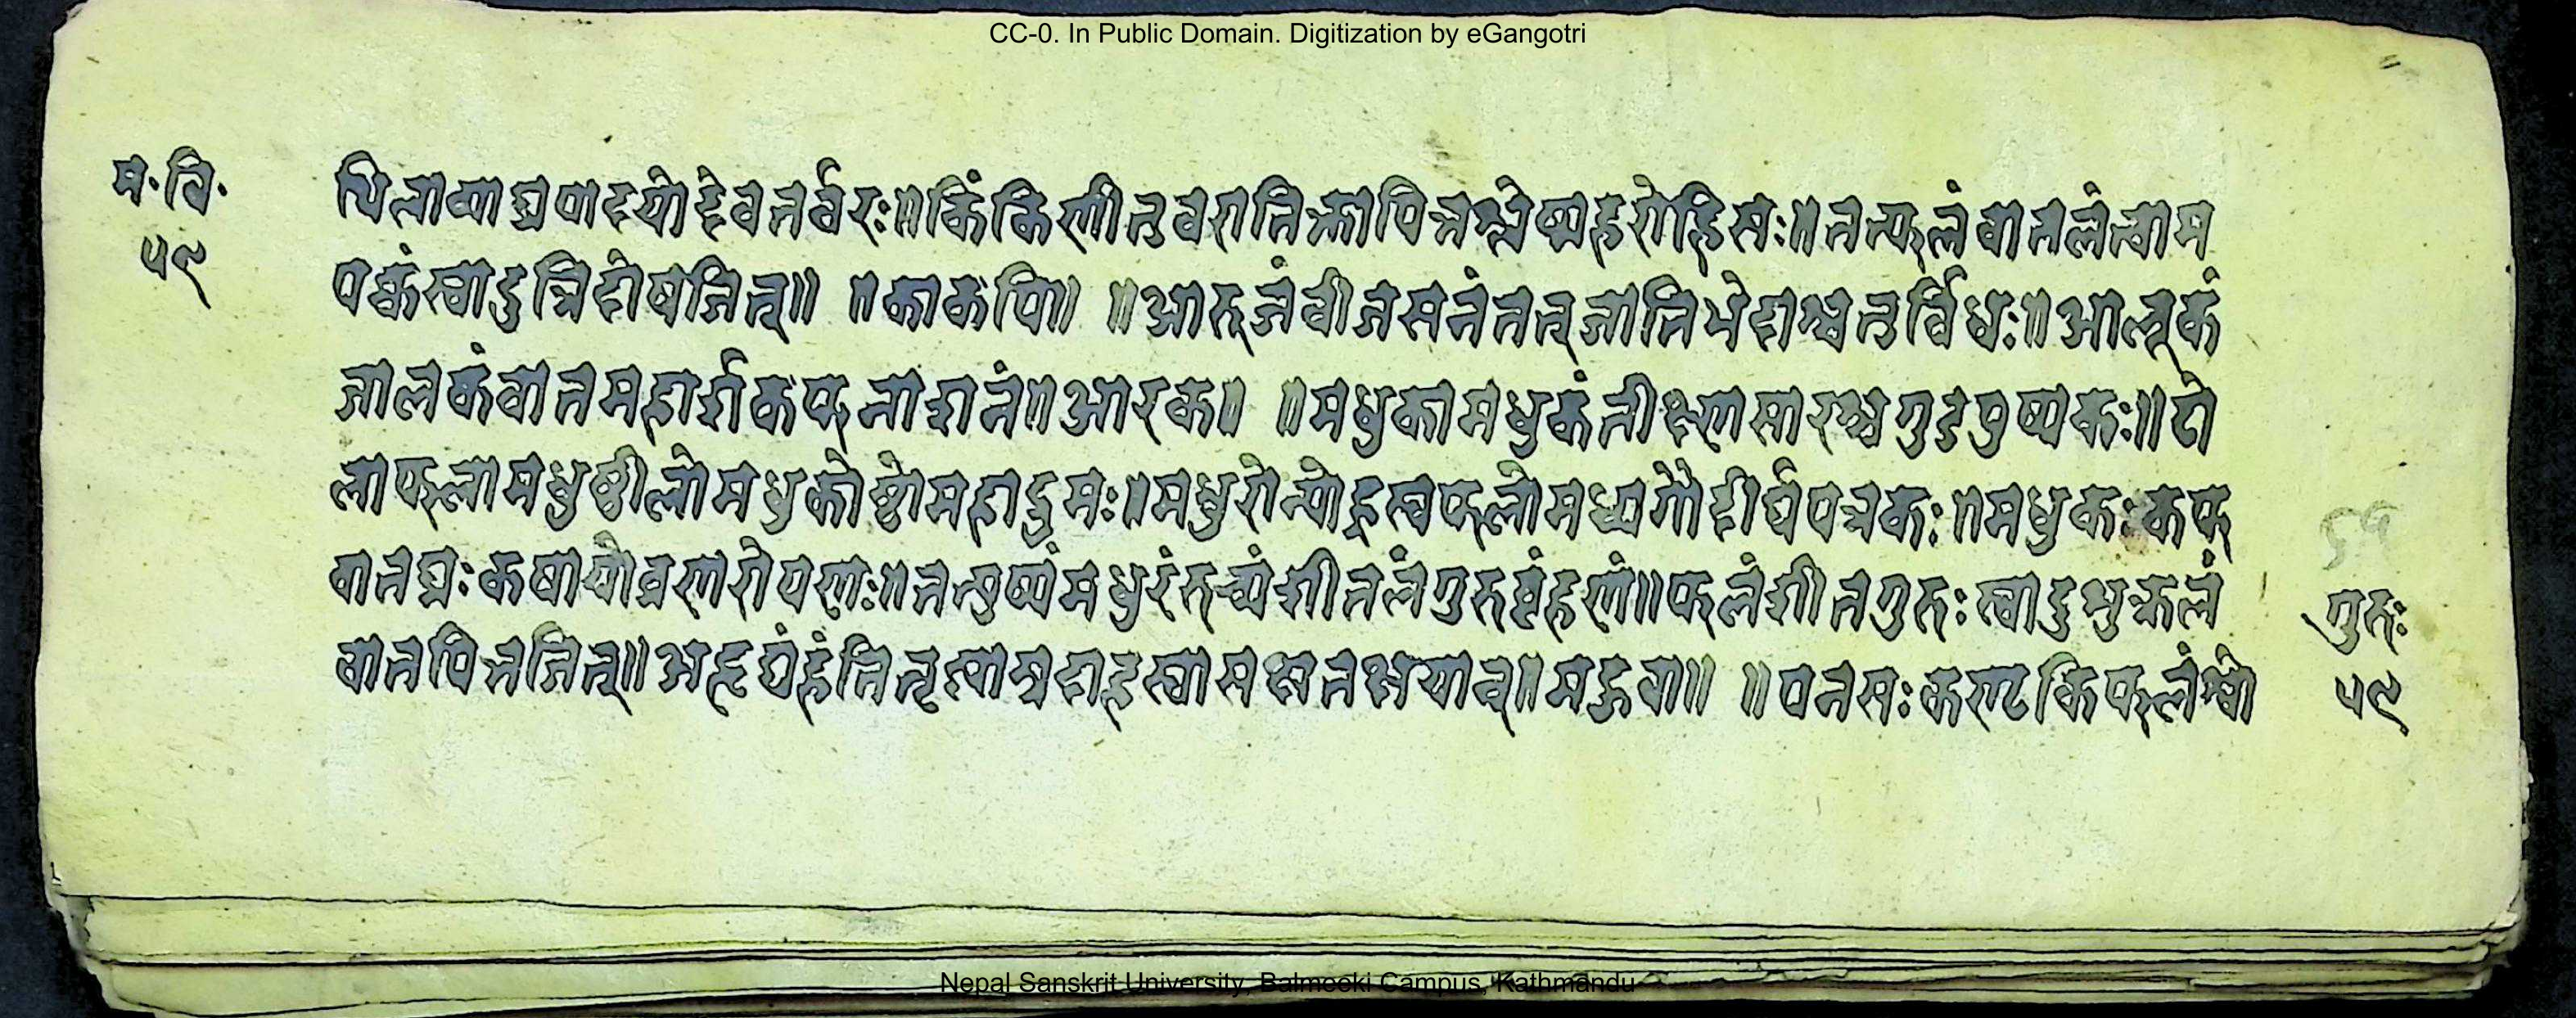 CC-0. In Public Domain. Digitization by eGangotri
म·वि·
५९
पिलाव्याघ्रपादयोद्देवतर्वरः॥किंकिणीतुवरातिक्तापित्तश्लेष्महरोहिसः॥तत्फलंवातलंत्वाम
पक्वंस्वादुत्रिदोषजित्॥ ॥काकपि॥ ॥आरूजंवीजसनंतत्जातिभेदाश्चतुर्विधः॥आलूकं
जालकंवातमहार्शकफनाशनं॥आरक॥ ॥मधुकामधुकंतीक्ष्णसारश्चगुडपुष्पकः॥रो
लाफलामधुष्ठीलोमधुकोष्ठोमहाद्रुमः॥मधुरोन्योह्रस्वफलोमध्वगोदीर्घपत्रकः॥मधुकःकफ
वातघ्नःकषायोव्रणरोपणः॥तत्पुष्पंमधुरंरुच्यंशीतलंगुरुबृंहणं॥फलंशीतगुरुःस्वादुशुक्रलं
वातपित्तजित्॥अहृद्यंहंतितृत्वाम्रदाहस्वासक्षतक्षयान्॥महुवा॥ ॥पनसःकण्टकिफलंश्वो
५९
गुरुः
५९
Nepal Sanskrit University, Balmeeki Campus, Kathmandu